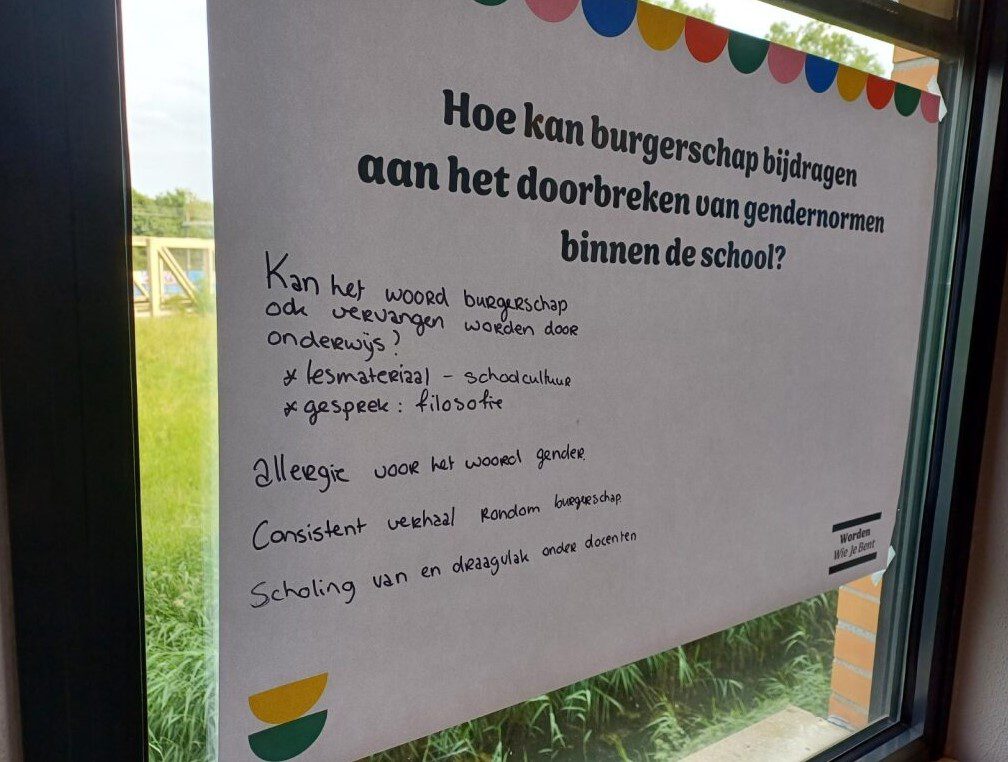 Hoe kan burgerschap bijdragen
aan het doorbreken van gendernormen
binnen de school?
Kan het woord burgerschap
ook vervangen worden door
onderwijs?
* lesmateriaal - schoolcultuur
* gesprek: filosofie
allergie voor het woord gender.
Consistent verhaal rondom burgerschap
Scholing van en draagvlak onder docenten
Worden
Wie Je Bent